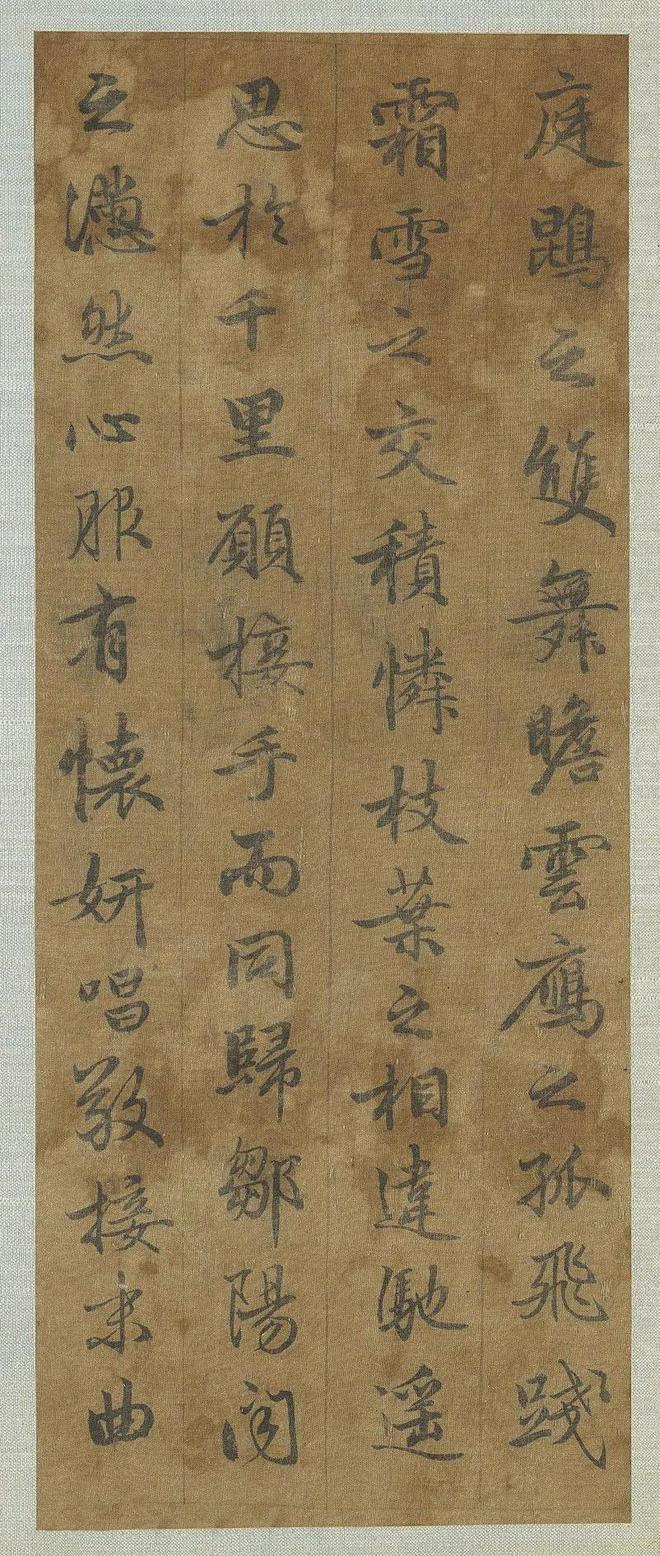 庭鵾之雙舞瞻雲鴈之孤飛踐
霜雪之交積憐枝葉之相違馳遥
思於千里願接手而同歸鄒陽聞
之懣然心服有懷妍唱敬接末曲